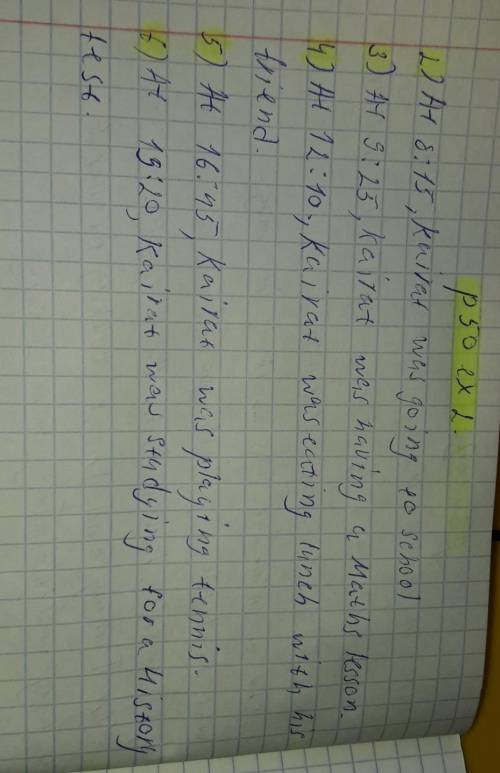 p50 ex 2.
2) At 8:15, Kairat was going to school
3) At 9:25, Kairat was having a Maths lesson.
4) At 12:10, Kairat was eating lunch with his
friend.
5) At 16:45, Kairat was playing tennis.
6) At 19:20, Kairat was studying for a History
test.